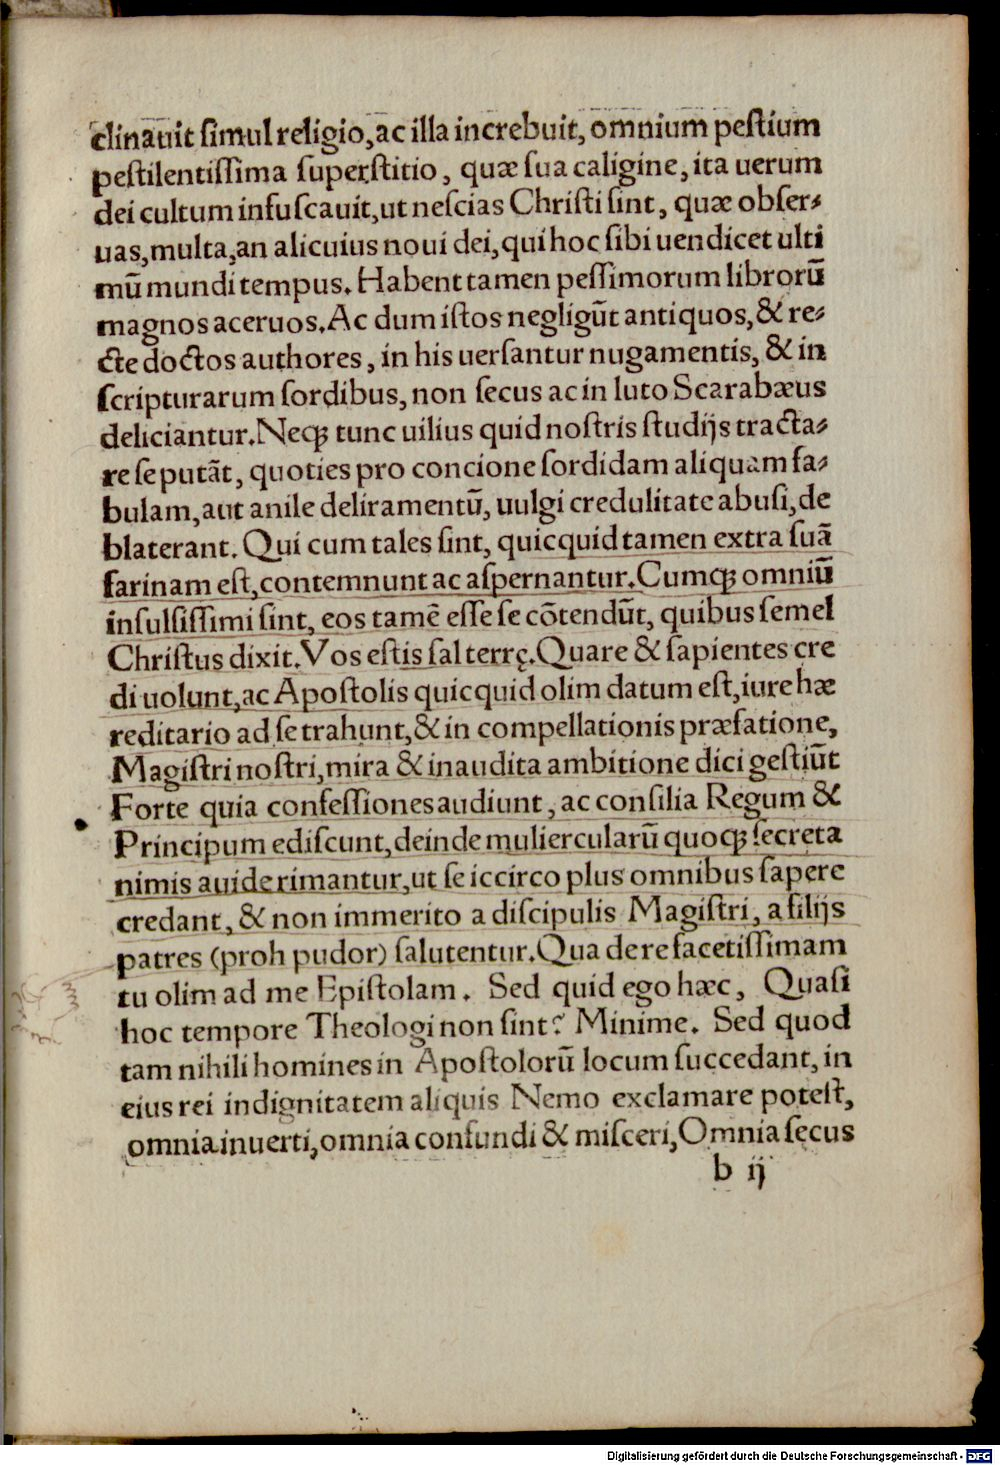 clinauit simul religio, ac illa increbuit, omnium pestium
pestilentissima superstitio, quæ sua caligine, ita uerum
dei cultum infuscauit, ut nescias Christi sint, quæ obser-
uas, multa, an alicuius noui dei, qui hoc sibi uendicet ulti
mũ mundi tempus. Habent tamen pessimorum librorũ
magnos aceruos. Ac dum istos negligũt antiquos, & re-
cte doctos authores, in his uersantur nugamentis, & in
scripturarum sordibus, non secus ac in luto Scarabæus
deliciantur. Neqꝫ tunc uilius quid nostris studijs tracta-
re se putãt, quoties pro concione sordidam aliquam fa-
bulam, aut anile deliramentũ, uulgi credulitate abusi, de
blaterant. Qui cum tales sint, quicquid tamen extra suã
farinam est, contemnunt ac aspernantur. Cumqꝫ omniũ
insulsissimi sint, eos tamẽ esse se cõtendũt, quibus semel
Christus dixit. Vos estis sal terrę. Quare & sapientes cre
di uolunt, ac Apostolis quicquid olim datum est, iure hæ
reditario ad se trahunt, & in compellationis præfatione,
Magistri nostri, mira & inaudita ambitione dici gestiũt
Forte quia confessiones audiunt, ac consilia Regum &
Principum ediscunt, deinde muliercularũ quoqꝫ secreta
nimis auide rimantur, ut se iccirco plus omnibus sapere
credant, & non immerito a discipulis Magistri, a filijs
patres (proh pudor) salutentur. Qua de re facetissimam
tu olim ad me Epistolam. Sed quid ego hæc, Quasi
hoc tempore Theologi non sint? Minime. Sed quod
tam nihili homines in Apostolorũ locum succedant, in
eius rei indignitatem aliquis Nemo exclamare potest,
omnia inuerti, omnia confundi & misceri, Omnia secus
b ij
Digitalisierung gefördert durch die Deutsche Forschungsgemeinschaft - DFG